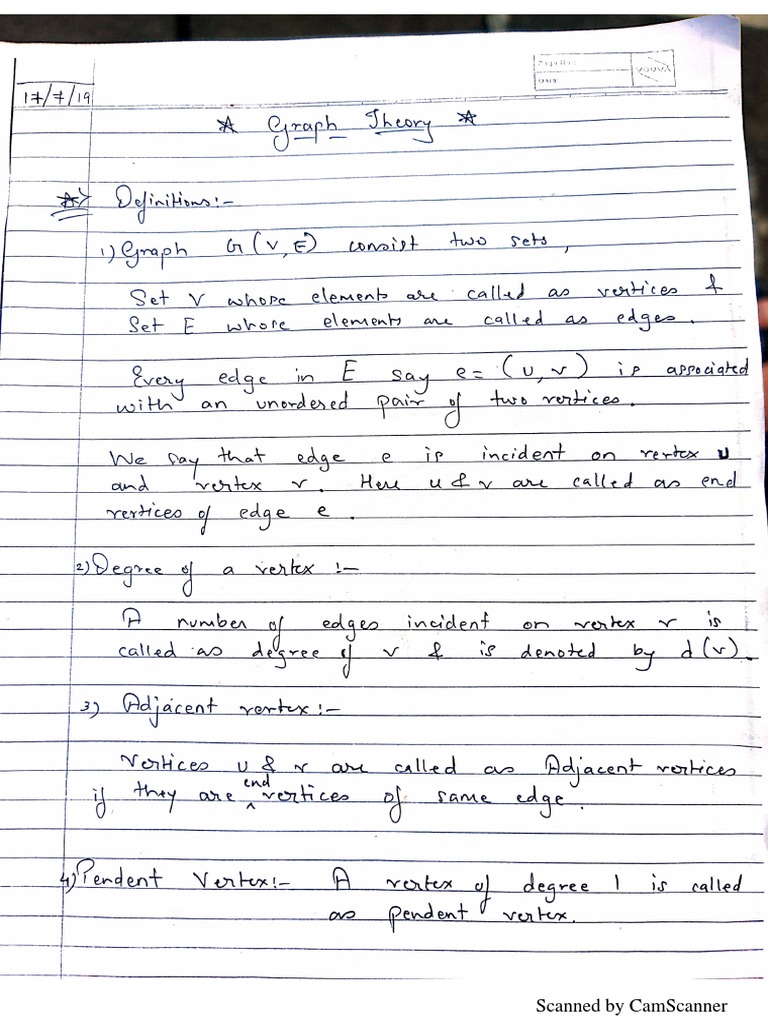 17/7/19
* Graph Theory *
*> Definitions:-
1) Graph G(V, E) consist two sets,
Set V whose elements are called as vertices &
Set E whose elements are called as edges.
Every edge in E say e = (u, v) is associated
with an unordered pair of two vertices.
We say that edge e is incident on vertex u
and vertex v. Here u & v are called as end
vertices of edge e.
2) Degree of a vertex :-
A number of edges incident on vertex v is
called as degree of v & is denoted by d(v).
3) Adjacent vertex:-
Vertices u & v are called as Adjacent vertices
if they are end vertices of same edge.
4) Pendent Vertex:- A vertex of degree 1 is called
as pendent vertex.
Scanned by CamScanner